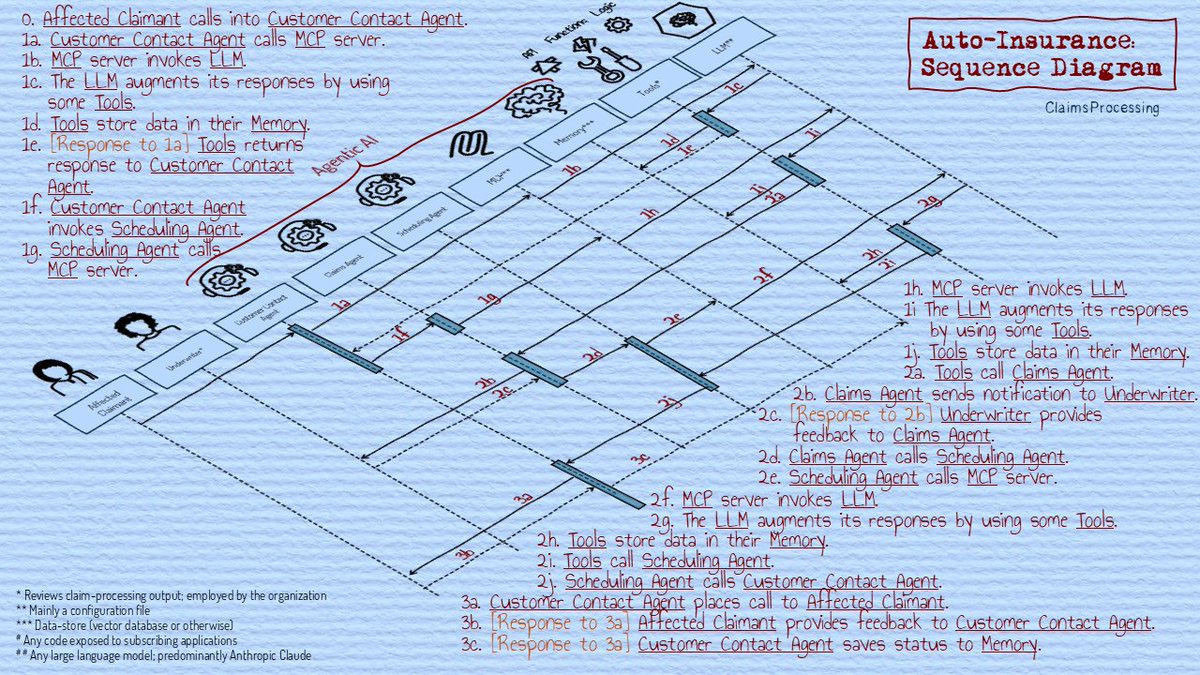 0. Affected Claimant calls into Customer Contact Agent.
1a. Customer Contact Agent calls MCP server.
1b. MCP server invokes LLM.
1c. The LLM augments its responses by using
some Tools.
1d. Tools store data in their Memory.
1e. [Response to 1a] Tools returns
response to Customer Contact
Agent.
1f. Customer Contact Agent
invokes Scheduling Agent.
1g. Scheduling Agent calls
MCP server.
Auto-Insurance:
Sequence Diagram
ClaimsProcessing
Agentic AI
API Functions Logic
Affected
Claimant
Underwriter*
Customer Contact
Agent
Claims Agent
Scheduling Agent
MCP**
Memory***
Tools#
LLM##
1a
1b
1c
1d
1e
1f
1g
1h
1i
1j
2a
2b
2c
2d
2e
2f
2g
2h
2i
2j
3a
3b
3c
1h. MCP server invokes LLM.
1i The LLM augments its responses
by using some Tools.
1j. Tools store data in their Memory.
2a. Tools call Claims Agent.
2b. Claims Agent sends notification to Underwriter.
2c. [Response to 2b] Underwriter provides
feedback to Claims Agent.
2d. Claims Agent calls Scheduling Agent.
2e. Scheduling Agent calls MCP server.
2f. MCP server invokes LLM.
2g. The LLM augments its responses by using some Tools.
2h. Tools store data in their Memory.
2i. Tools call Scheduling Agent.
2j. Scheduling Agent calls Customer Contact Agent.
3a. Customer Contact Agent places call to Affected Claimant.
3b. [Response to 3a] Affected Claimant provides feedback to Customer Contact Agent.
3c. [Response to 3a] Customer Contact Agent saves status to Memory.
* Reviews claim-processing output; employed by the organization
** Mainly a configuration file
*** Data-store (vector database or otherwise)
# Any code exposed to subscribing applications
## Any large language model; predominantly Anthropic Claude